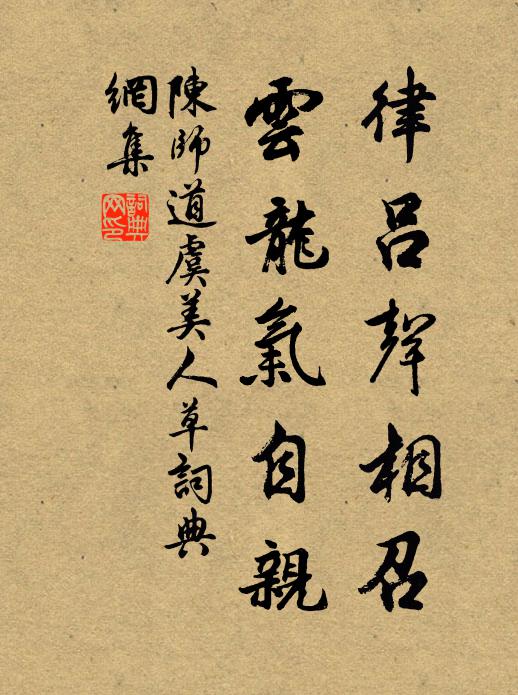 律呂聲相召
雲龍氣自親
陳師道虞美人草詞典
網集
詞典網印